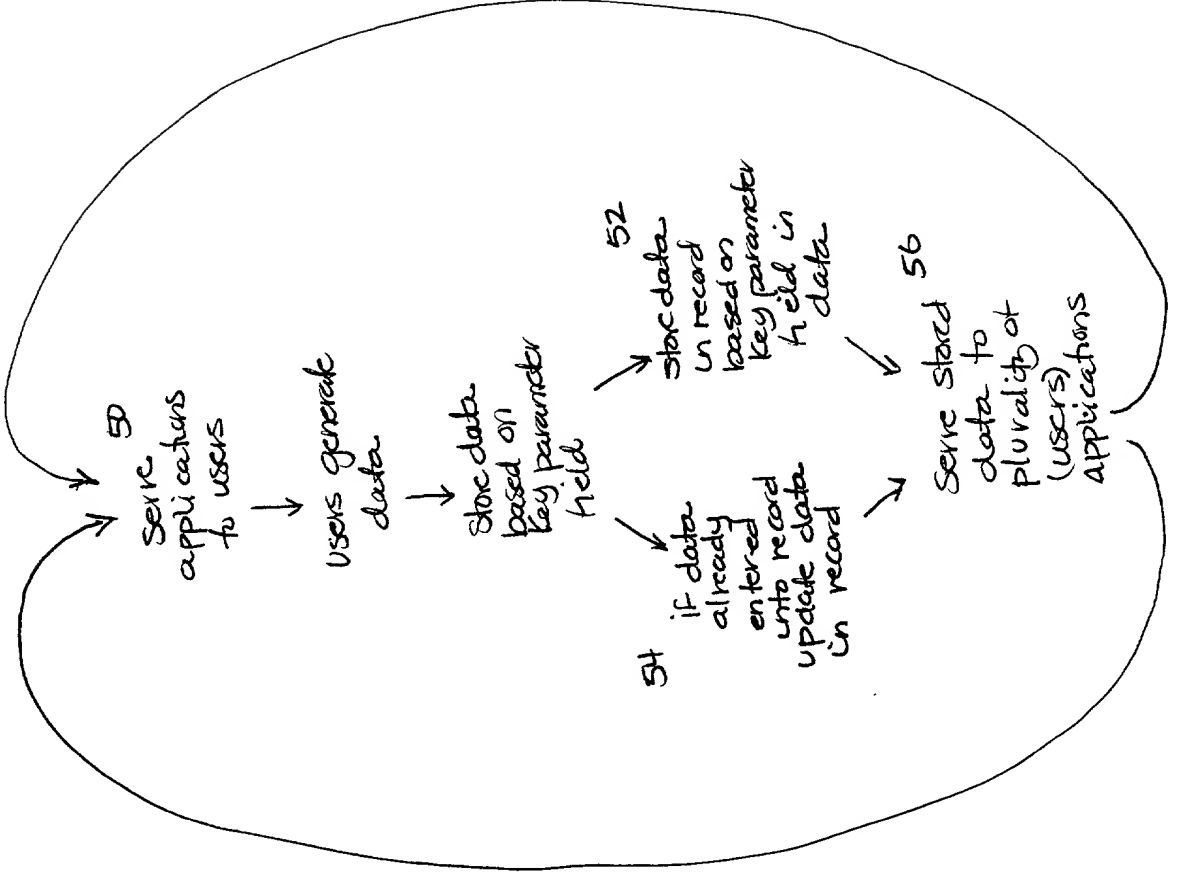 Serve 50
applications
to users
users generate
data
Store data
based on
key parameter
field
52
store data
in record
based on
key parameter
field in
data
54
if data
already
entered
into record
update data
in record
Serve stored 56
data to
plurality of
(users)
applications